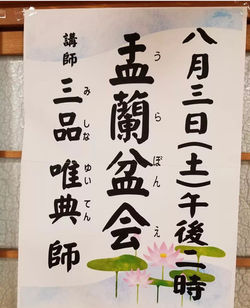 八月三日(土)午後二時
盂蘭盆会
うらぼんえ
講師 三品唯典師
みしな ゆいてん